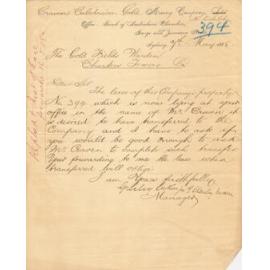 Craven's Caledonian Gold Mining Company
Office Bank of Australasia Chambers,
George and Jamieson Streets
394
Sydney, 7th May 1886
The Gold Fields Warden
Charters Towers
Dear Sir
The lease of this Company's property
No 394 which is now lying at your
office in the name of Mr Craven it
is desired to have transferred to the
Company and I have to ask if
you would be good enough to send
Mr Craven to complete such transfer
Your forwarding to me the lease when
transferred will oblige
I am Yours faithfully,
Manager